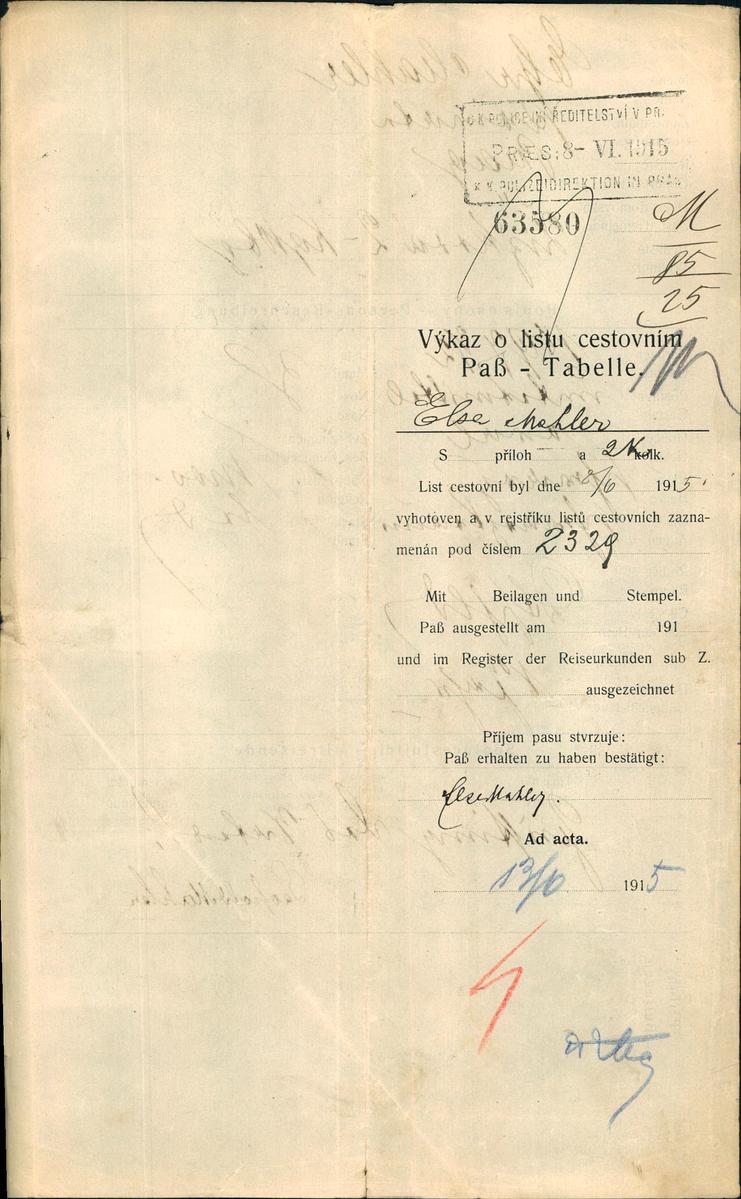 K.K. POLICEJNÍ ŘEDITELSTVÍ V PR.
PRÆS: 8- VI. 1915
K. K. POLIZEIDIREKTION IN PRAG
63580
M
85
25
Výkaz o listu cestovním
Paß - Tabelle.
Else Mahler
S příloh — a 2K kolk.
List cestovní byl dne 8/6 1915.
vyhotoven a v rejstříku listů cestovních zazna-
menán pod číslem 2329
Mit Beilagen und Stempel.
Paß ausgestellt am 191
und im Register der Reiseurkunden sub Z.
ausgezeichnet
Příjem pasu stvrzuje:
Paß erhalten zu haben bestätigt:
Else Mahler.
Ad acta.
13/6 1915